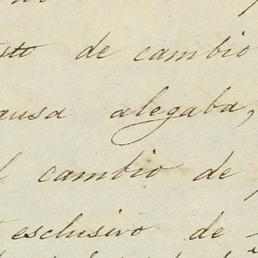 de cambio
ausa alegaba,
cambio de
esclusivo de